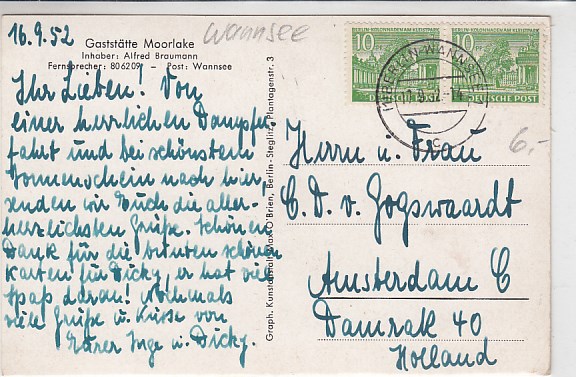 16.9.52
Wannsee
Gaststätte Moorlake
Inhaber: Alfred Braumann
Fernsprecher: 806209 - Post: Wannsee
Ihr Lieben! Von
einer herrlichen Dampfer-
fahrt und bei schönstem
Sonnenschein nach hier,
senden wir Euch die aller-
herzlichsten Grüße. Schönen
Dank für die bunten schönen
Karten für Dicky, er hat viel
Spaß daran! Nochmals
viele Grüße u. Küsse von
Eurer Inge u. Dicky.
Graph. Kunstanstalt Max O'Brien, Berlin-Steglitz, Plantagenstr. 3
10
10
DEUTSCHE POST
BERLIN-WANNSEE
c
6.-
Herrn u. Frau
C. D. v. Gogswaardt
Amsterdam C
Damrak 40
Holland